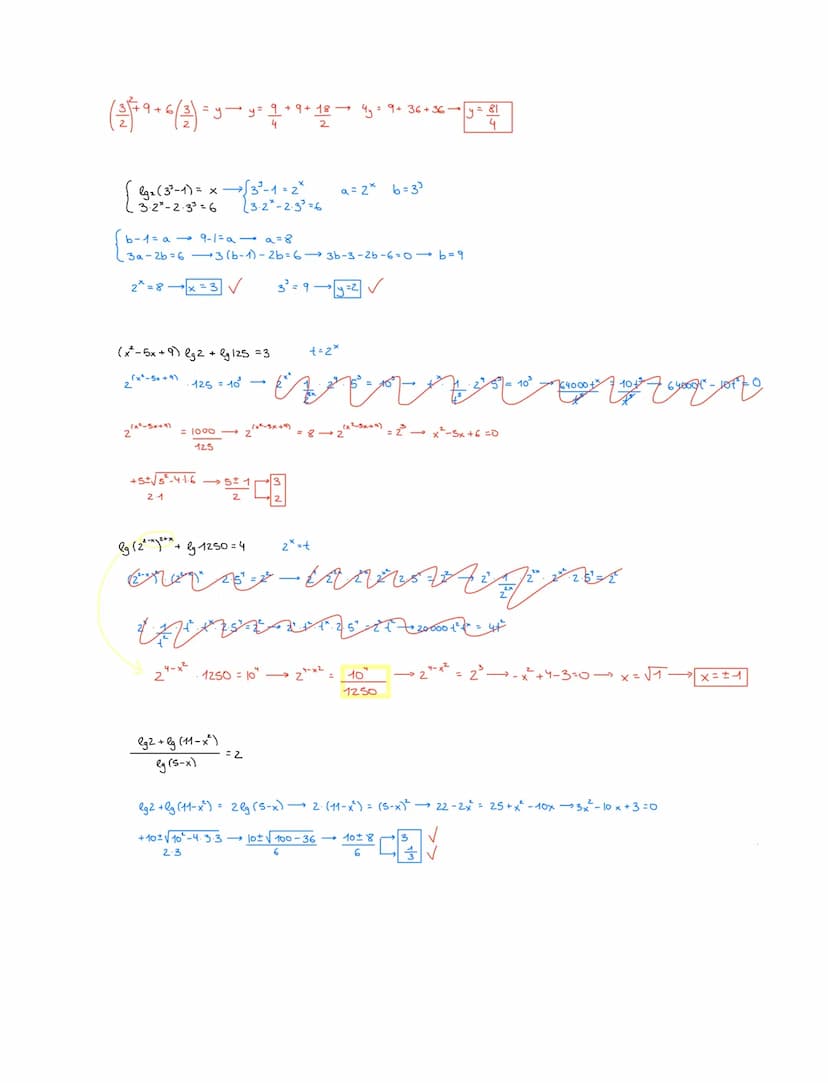 (3/2)² + 9 + 6(3/2) = y → y = 9/4 + 9 + 18/2 → 4y = 9 + 36 + 36 → y = 81/4
{ lg₂(3ʸ-1) = x → { 3ʸ-1 = 2ˣ a = 2ˣ b = 3ʸ
3·2ˣ - 2·3ʸ = 6 3·2ˣ - 2·3ʸ = 6
{ b-1 = a → 9-1 = a → a = 8
3a-2b = 6 → 3(b-1)-2b = 6 → 3b-3-2b-6 = 0 → b = 9
2ˣ = 8 → x = 3 ✓ 3ʸ = 9 → y = 2 ✓
(x²-5x+9) lg2 + lg125 = 3 t = 2ˣ
2^(x²-5x+9) · 125 = 10³ →
2^(x²-5x+9) = 1000/125 → 2^(x²-5x+9) = 8 → 2^(x²-5x+9) = 2³ → x²-5x+6 = 0
(+5±√(5²-4·1·6))/(2·1) → (5±1)/2 → 3
→ 2
lg(2^(2-x))^(2+x) + lg1250 = 4 2ˣ = t
2^(4-x²) · 1250 = 10⁴ → 2^(4-x²) = 10⁴/1250 → 2^(4-x²) = 2³ → -x²+4-3 = 0 → x = √1 → x = ±1
(lg2 + lg(11-x²))/(lg(5-x)) = 2
lg2 + lg(11-x²) = 2lg(5-x) → 2·(11-x²) = (5-x)² → 22-2x² = 25+x²-10x → 3x²-10x+3 = 0
(+10±√(10²-4·3·3))/(2·3) → (10±√(100-36))/6 → (10±8)/6 → 3 ✓
→ 1/3 ✓